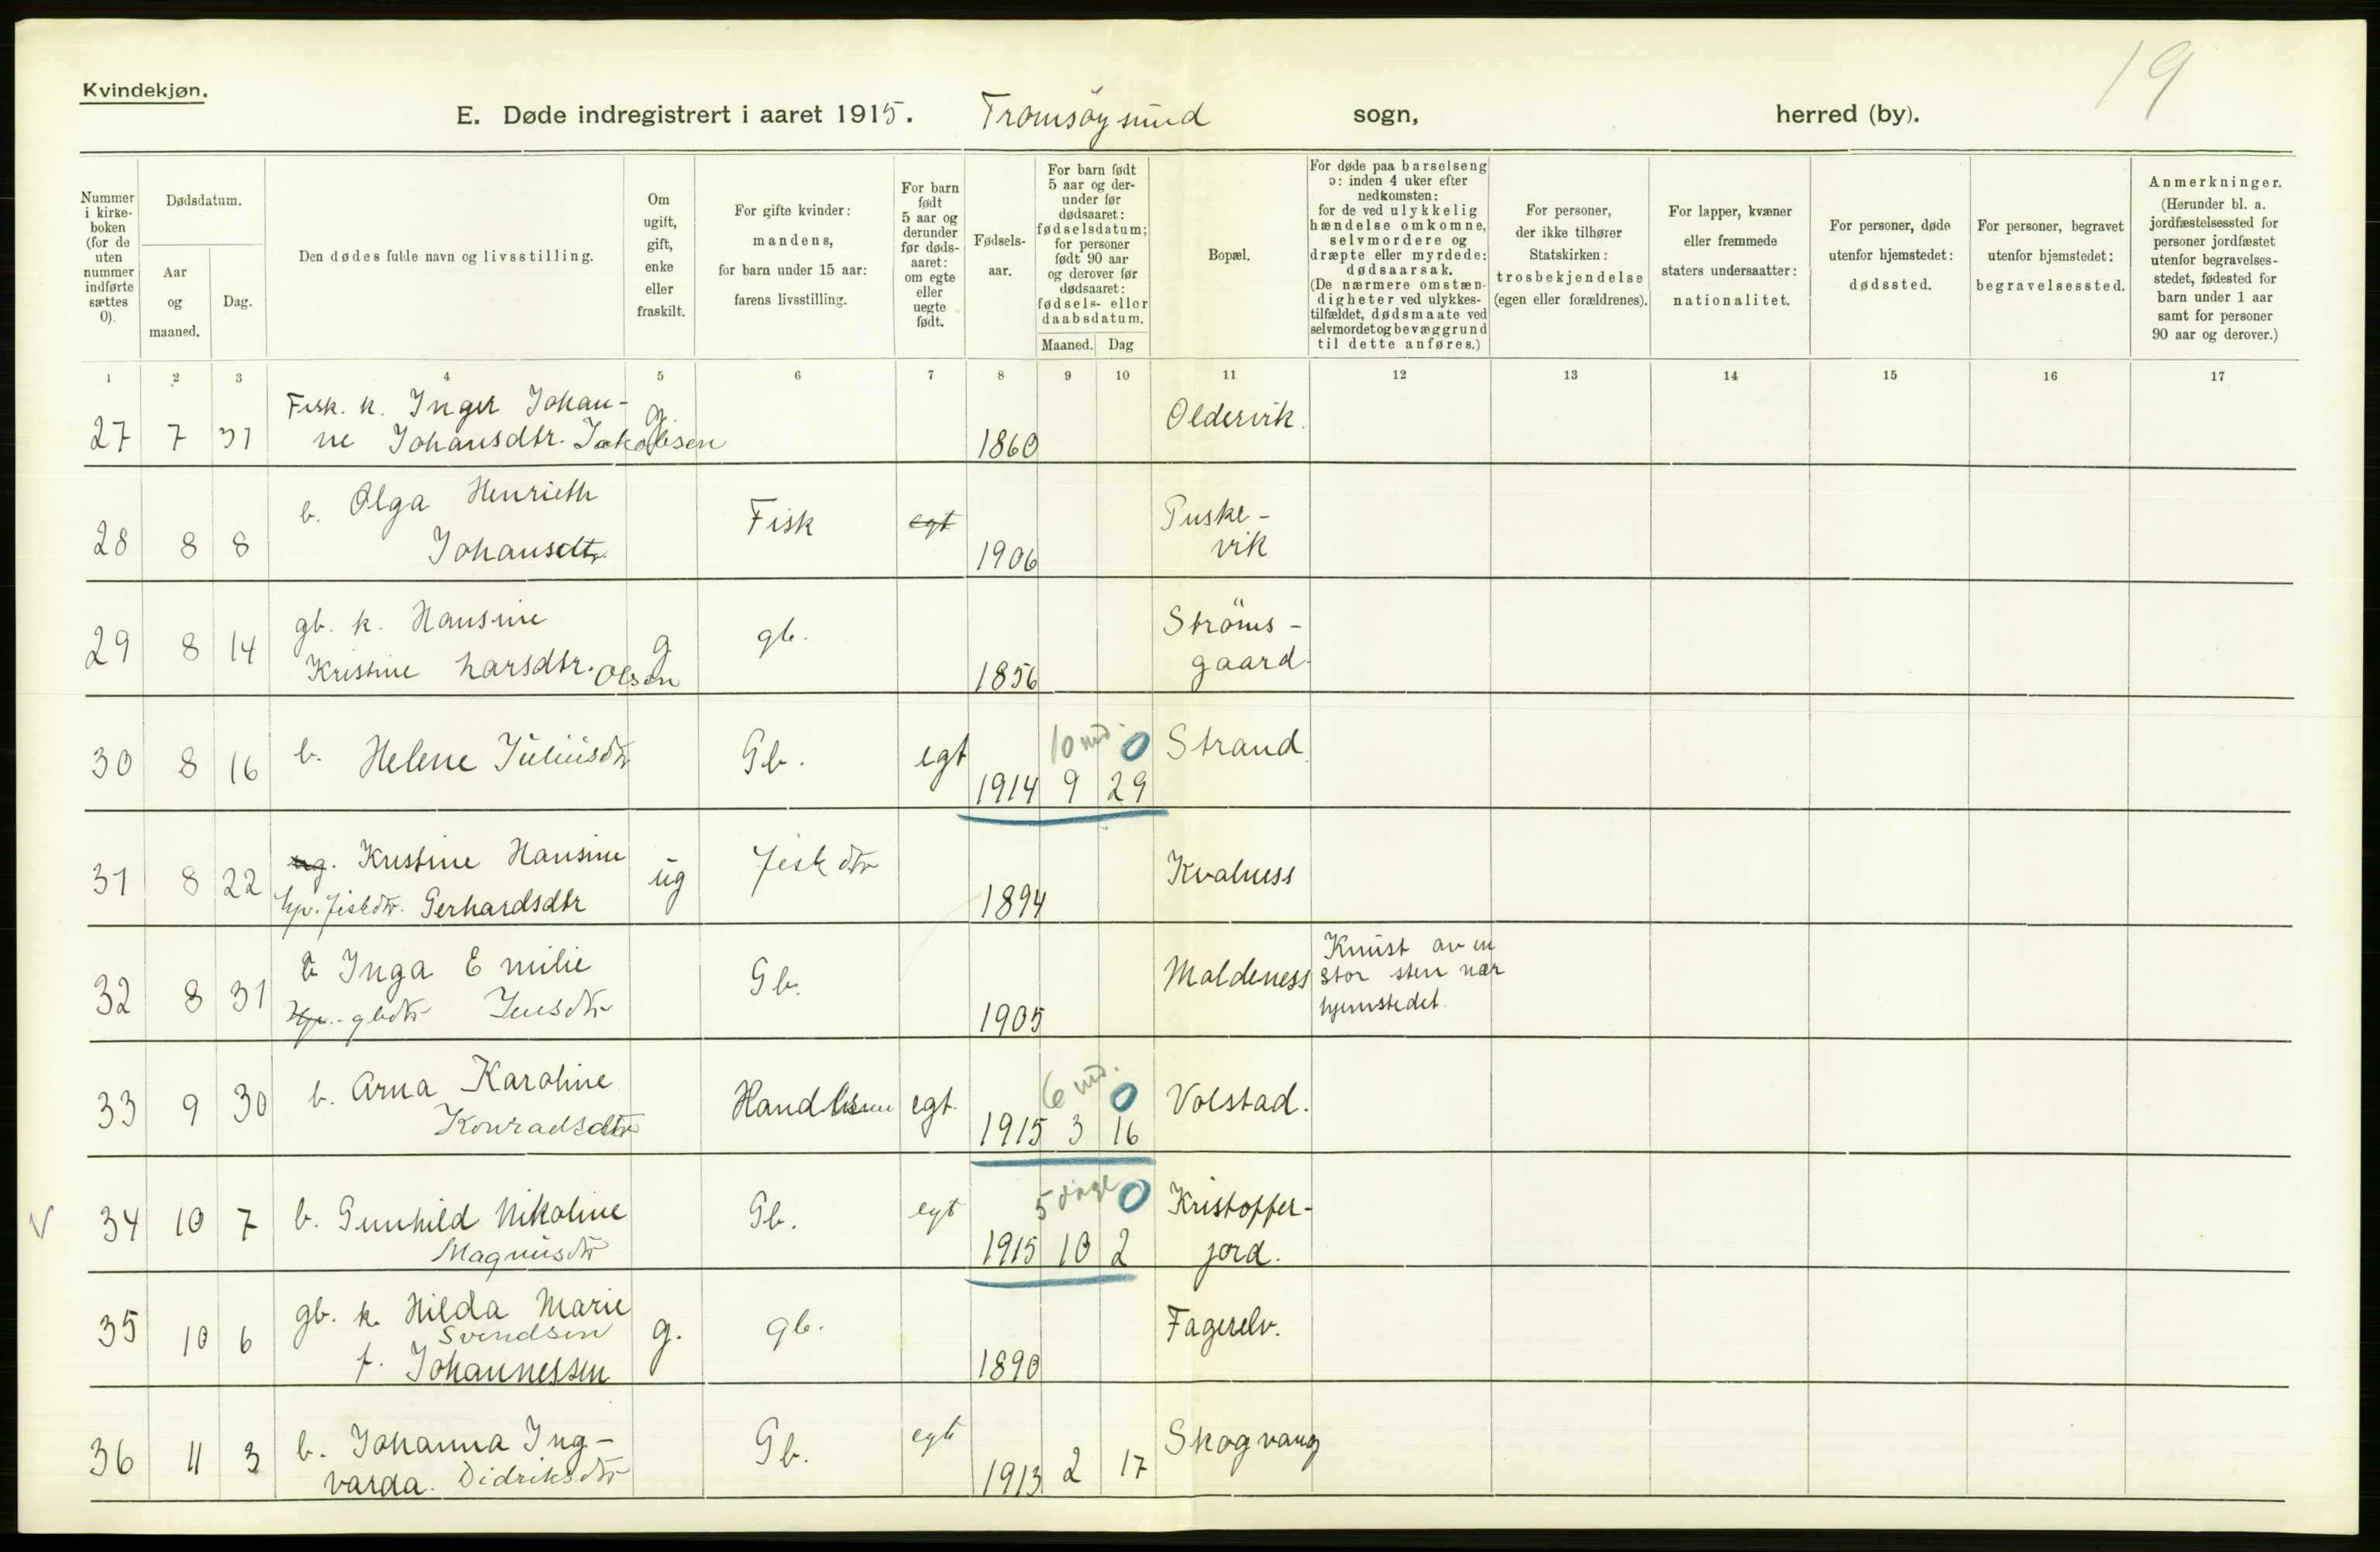 19
Kvindekjøn.
E. Døde indregistrert i aaret 1915. Tromsøysund sogn, herred (by).
Nummer i kirke-boken (for de uten nummer indførte sættes 0).
Dødsdatum.
Aar og maaned.
Dag.
Den dødes fulde navn og livsstilling.
Om ugift, gift, enke eller fraskilt.
For gifte kvinder: mandens, for barn under 15 aar: farens livsstilling.
For barn født 5 aar og derunder før døds-aaret: om egte eller uegte født.
Fødsels-aar.
For barn født 5 aar og der-under før dødsaaret: fødselsdatum; for personer født 90 aar og derover før dødsaaret: fødsels- eller daabsdatum.
Maaned. Dag
Bopæl.
For døde paa barselseng ɔ: inden 4 uker efter nedkomsten: for de ved ulykkelig hændelse omkomne, selvmordere og dræpte eller myrdede: dødsaarsak. (De nærmere omstæn-digheter ved ulykkes-tilfældet, dødsmaate ved selvmordet og bevæggrund til dette anføres.)
For personer, der ikke tilhører Statskirken: trosbekjendelse (egen eller forældrenes).
For lapper, kvæner eller fremmede staters undersaatter: nationalitet.
For personer, døde utenfor hjemstedet: dødssted.
For personer, begravet utenfor hjemstedet: begravelsessted.
Anmerkninger. (Herunder bl. a. jordfæstelsessted for personer jordfæstet utenfor begravelses-stedet, fødested for barn under 1 aar samt for personer 90 aar og derover.)
1 2 3 4 5 6 7 8 9 10 11 12 13 14 15 16 17
Fisk. k. Inger Johan- g. Oldervik.
27 7 31 ne Johansdtr. Jakobsen 1860
b. Olga Henrieth Fisk egt Puske-
28 8 8 Johansdtr. 1906 vik
gb. k. Hansine g gb. Ströms-
29 8 14 Kristine Larsdtr. Olsen 1856 gaard.
10 md. 0
30 8 16 b. Helene Juliusdtr Gb. egt 1914 9 29 Strand.
ug. Kristine Hansine ug fiskdtr Kvalness
31 8 22 hp. fiskdtr. Gerhardsdtr 1894
b Inga Emilie Gb. Maldeness Knust av en
stor sten nær
32 8 31 Hp. gbdtr Jensdtr 1905 hjemstedet.
6 md. 0
33 9 30 b. Arna Karoline Handlsm egt. Volstad.
Konradsdtr 1915 3 16
5 dage 0
V 34 10 7 b. Gunhild Nikoline Gb. egt Kristoffer-
Magnusdtr 1915 10 2 jord.
35 10 6 gb. k. Hilda Marie g. gb. Fagerelv.
Svendsen
f. Johannessen 1890
36 11 3 b. Johanna Ing- Gb. egt Skogvang
varda. Didriksdtr 1913 2 17